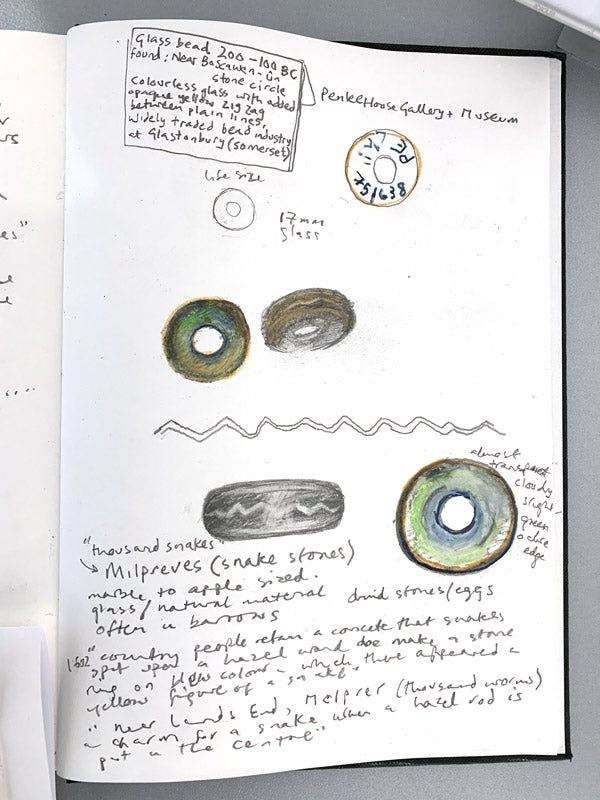 Glass bead 200-100 BC
found: Near Boscawen-ùn
stone circle
Colourless glass with added
opaque yellow zig zag
between plain lines,
widely traded bead industry
at Glastonbury (somerset)
Penlee House Gallery + Museum
751638
life size
17mm
glass
almost
transparent
cloudy
slight
green
ochre
edge
"thousand snakes"
Milpreves (snake stones)
marble to apple sized.
glass/natural material
druid stones/eggs
often in barrows
1602 "country people retain a concete that snakes
upon a hazel wand doe make a stone
ring on blew colour - which there appeared a
yellow figure of a snake"
"Near Lands End, Melprer (thousand worms)
a charm for a snake when a hazel rod is
put in the centre"